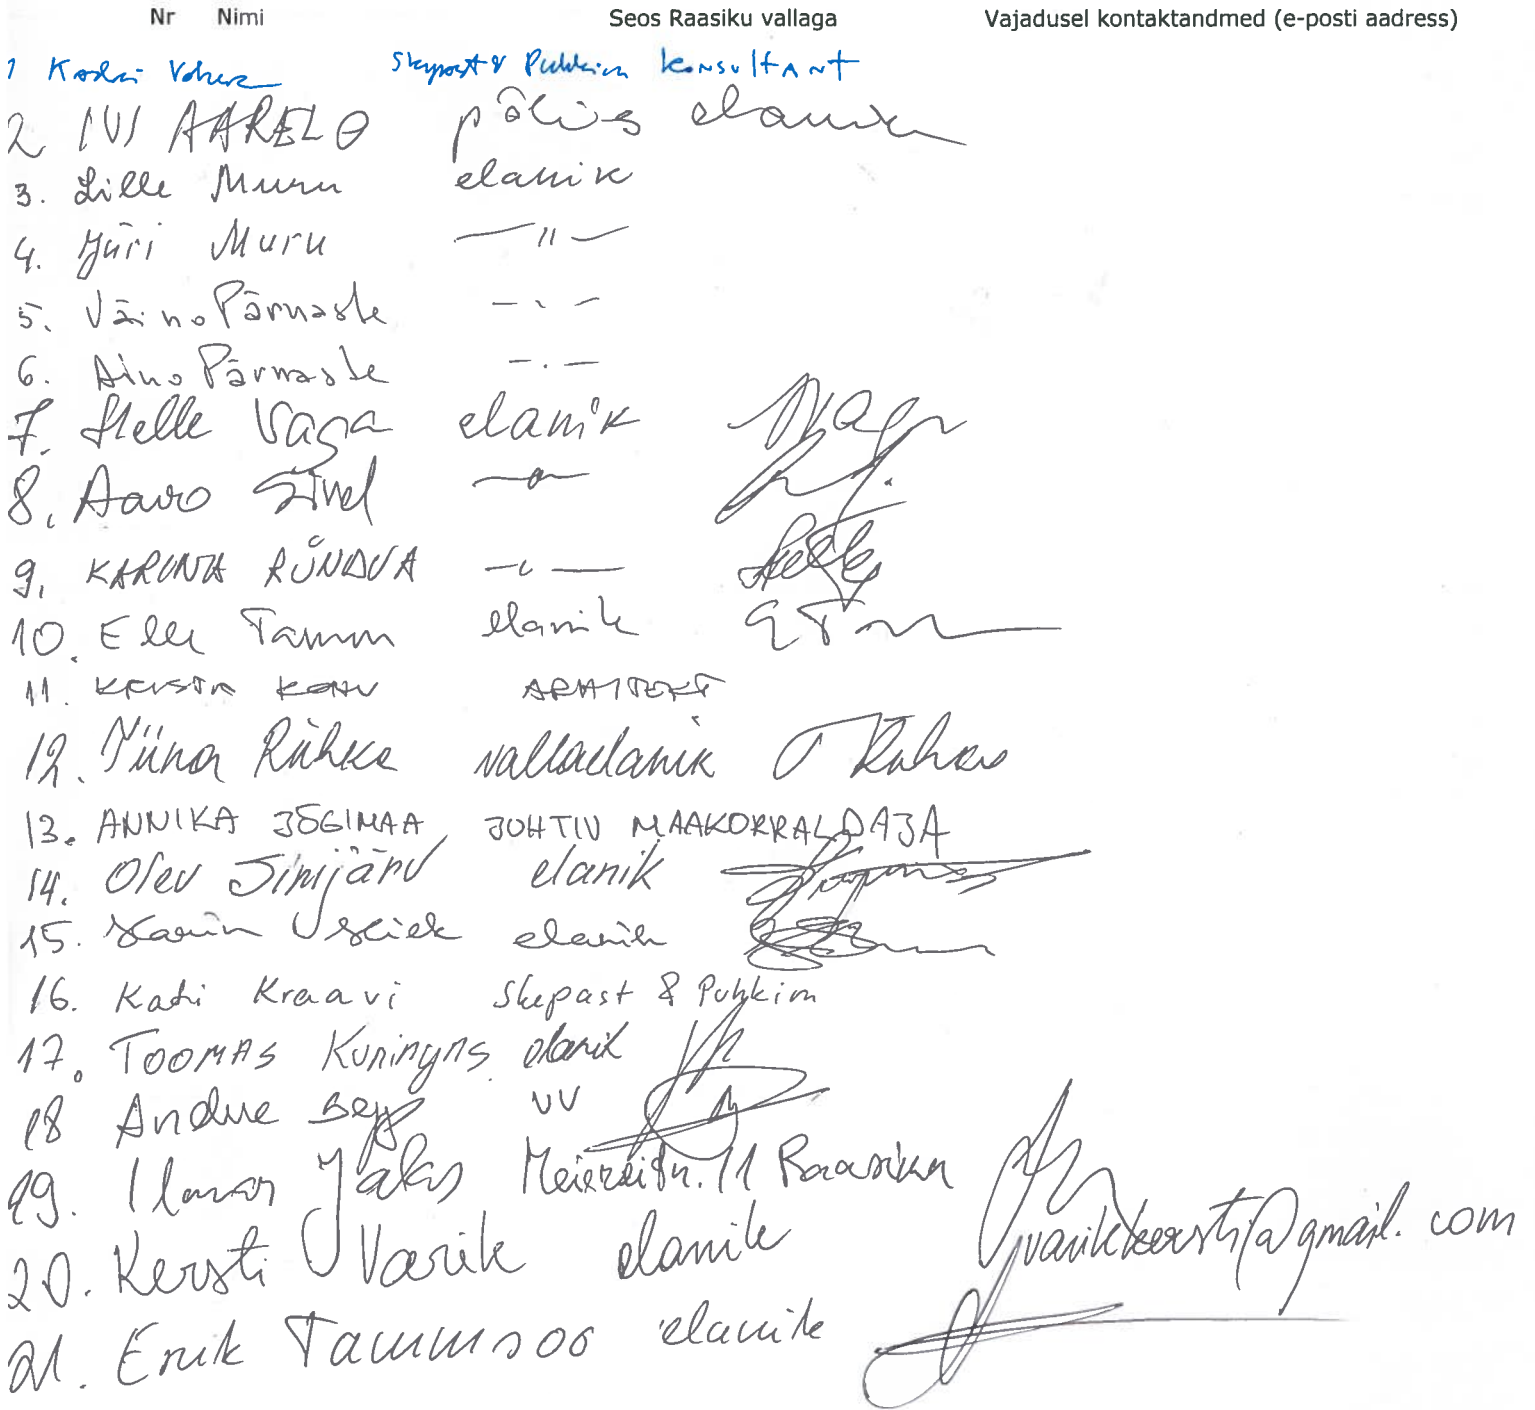 Nr Nimi Seos Raasiku vallaga Vajadusel kontaktandmed (e-posti aadress)
1 Kadri Vahera Skepast & Puhkim konsultant
2 IVI AARELO põlis elanik
3. Lille Muru elanik
4. Jüri Muru —"—
5. Väino Pärnaste —.—
6. Aino Pärnaste —.—
7. Helle Vaga elanik
8. Aavo —"—
9. KARINA RÜNDVA —"—
10. Elle Tamm elanik
11. KRISTA KOHV ARHITEKT
12. Tiina Rühka vallaelanik
13. ANNIKA JÕGIMAA, JUHTIV MAAKORRALDAJA
14. Olev Sinijärv elanik
15. Karin elanik
16. Kati Kraavi Skepast & Puhkim
17. TOOMAS Kuningas elanik
18 Andre Sepp VV
19. Ilmar Jalas Meierei tn. 11 Raasiku
20. Kersti Varik elanik varikkersti@gmail.com
21. Erik Tammsoo elanik